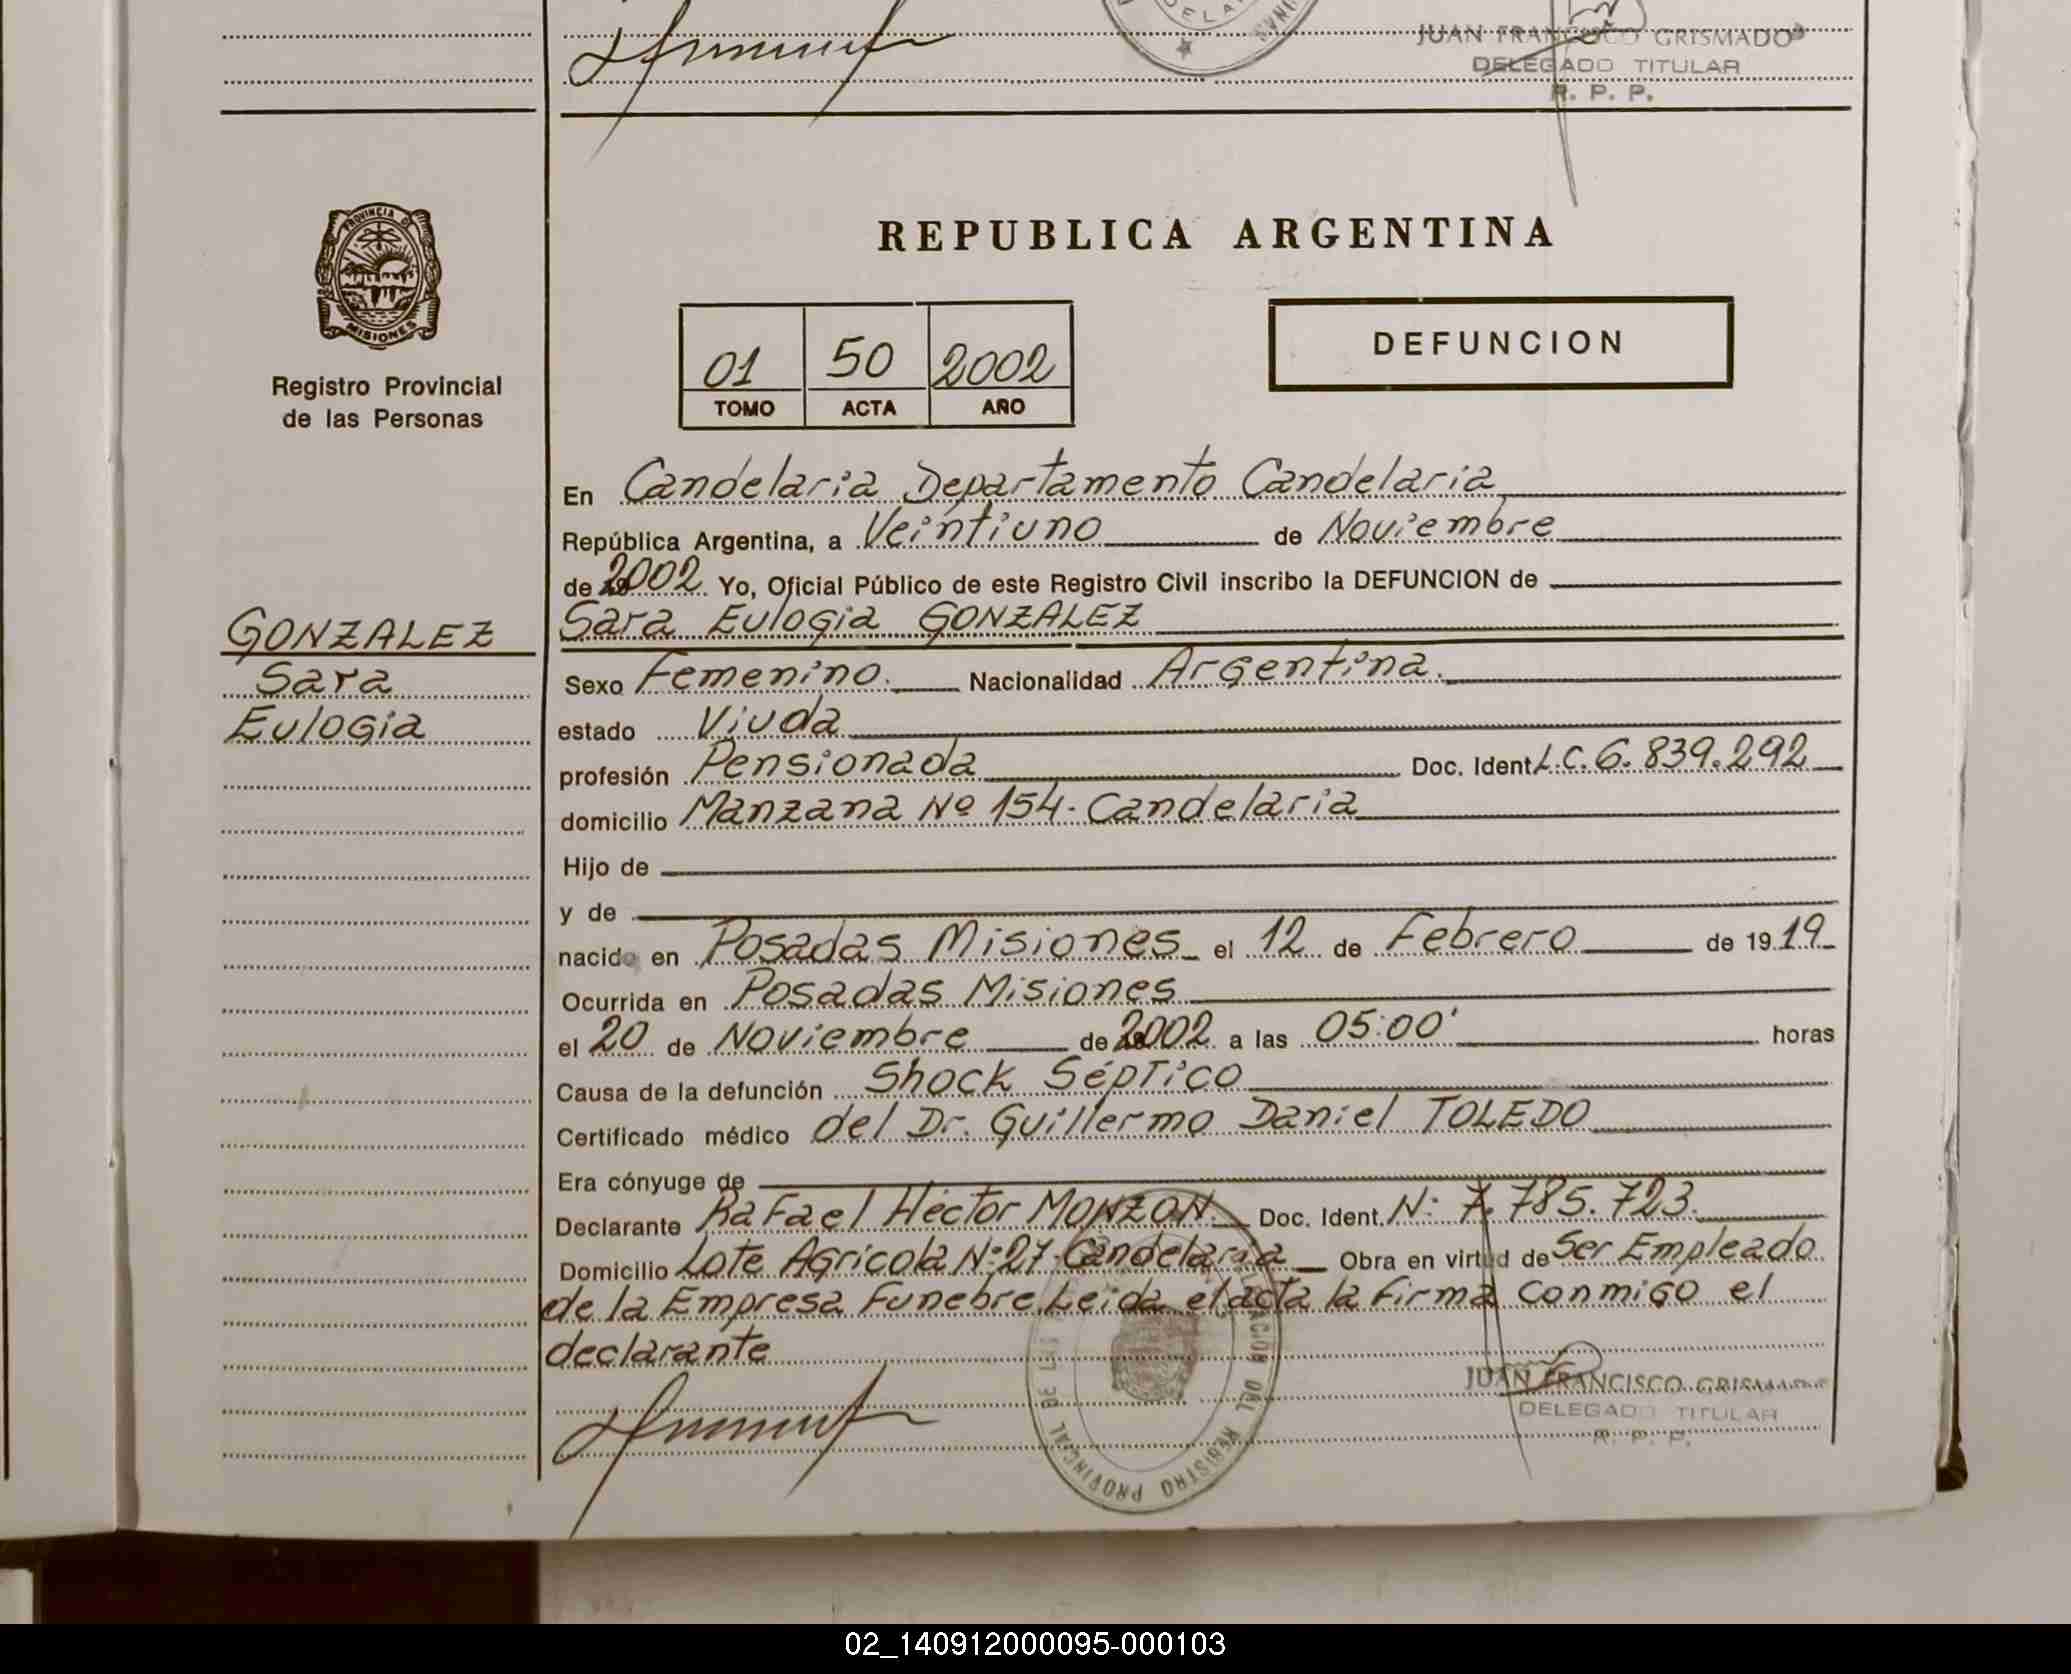 JUAN FRANCISCO GRISMADO
DELEGADO TITULAR
R. P. P.
PROVINCIA DE
MISIONES
Registro Provincial
de las Personas
REPUBLICA ARGENTINA
01 50 2002
TOMO ACTA AÑO
DEFUNCION
En Candelaria Departamento Candelaria
República Argentina, a Veintiuno de Noviembre
de 2002 Yo, Oficial Público de este Registro Civil inscribo la DEFUNCION de
GONZALEZ
Sara
Eulogia
Sara Eulogia GONZALEZ
Sexo Femenino. Nacionalidad Argentina.
estado Viuda
profesión Pensionada Doc. Ident. L.C. 6.839.292
domicilio Manzana Nº 154. Candelaria
Hijo de
y de
nacido en Posadas Misiones el 12 de Febrero de 1919
Ocurrida en Posadas Misiones
el 20 de Noviembre de 2002 a las 05:00' horas
Causa de la defunción Shock Séptico
Certificado médico del Dr. Guillermo Daniel TOLEDO
Era cónyuge de
Declarante Rafael Héctor MONZON. Doc. Ident. N: 7.785.723.
Domicilio Lote Agricola N:27. Candelaria Obra en virtud de Ser Empleado
de la Empresa Funebre. Leida el acta la firma conmigo el
declarante
JUAN FRANCISCO GRISMADO
DELEGADO TITULAR
R. P. P.
DEL REGISTRO PROVINCIAL DE
02_140912000095-000103